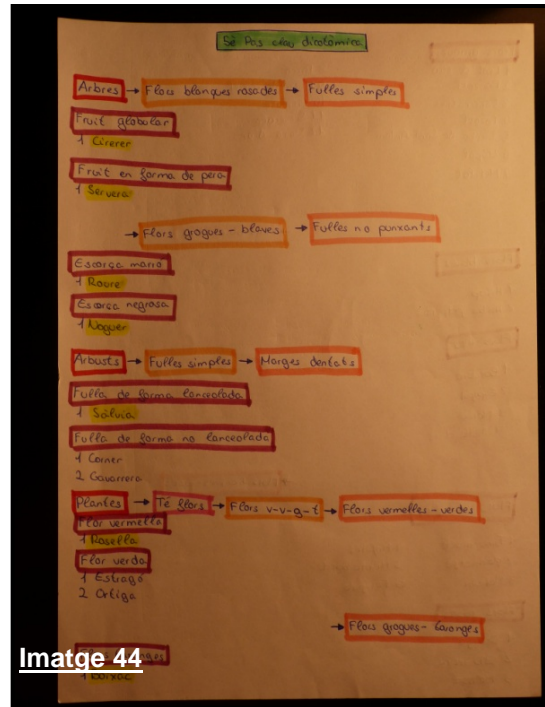 5è Pas clau dicotòmica
Arbres → Flors blanques rosades → Fulles simples
Fruit globular
1 Cirerer
Fruit en forma de pera
1 Servera
→ Flors grogues - blaves → Fulles no punxants
Escorça marró
1 Roure
Escorça negrosa
1 Noguer
Arbusts → Fulles simples → Marges dentats
Fulla de forma lanceolada
1 Sàlvia
Fulla de forma no lanceolada
1 Corner
2 Gavarrera
Plantes → Té flors → Flors v-v-g-t → Flors vermelles - verdes
Flor vermella
1 Rosella
Flor verda
1 Estragó
2 Ortiga
→ Flors grogues - taronges
Imatge 44